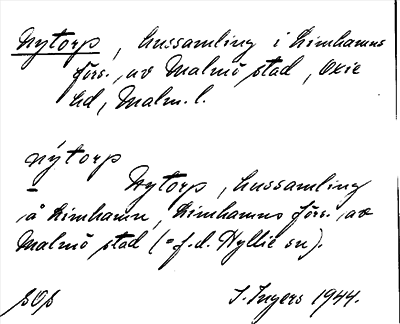 Nytorp, hussamling i Limhamns
förs., av Malmö stad, Oxie
hd, Malm. l.
nýtorp
Nytorp, hussamling
å Limhamn, Limhamns förs. av
Malmö stad (= f.d. Hyllie sn).
pOp I. Ingers 1944.